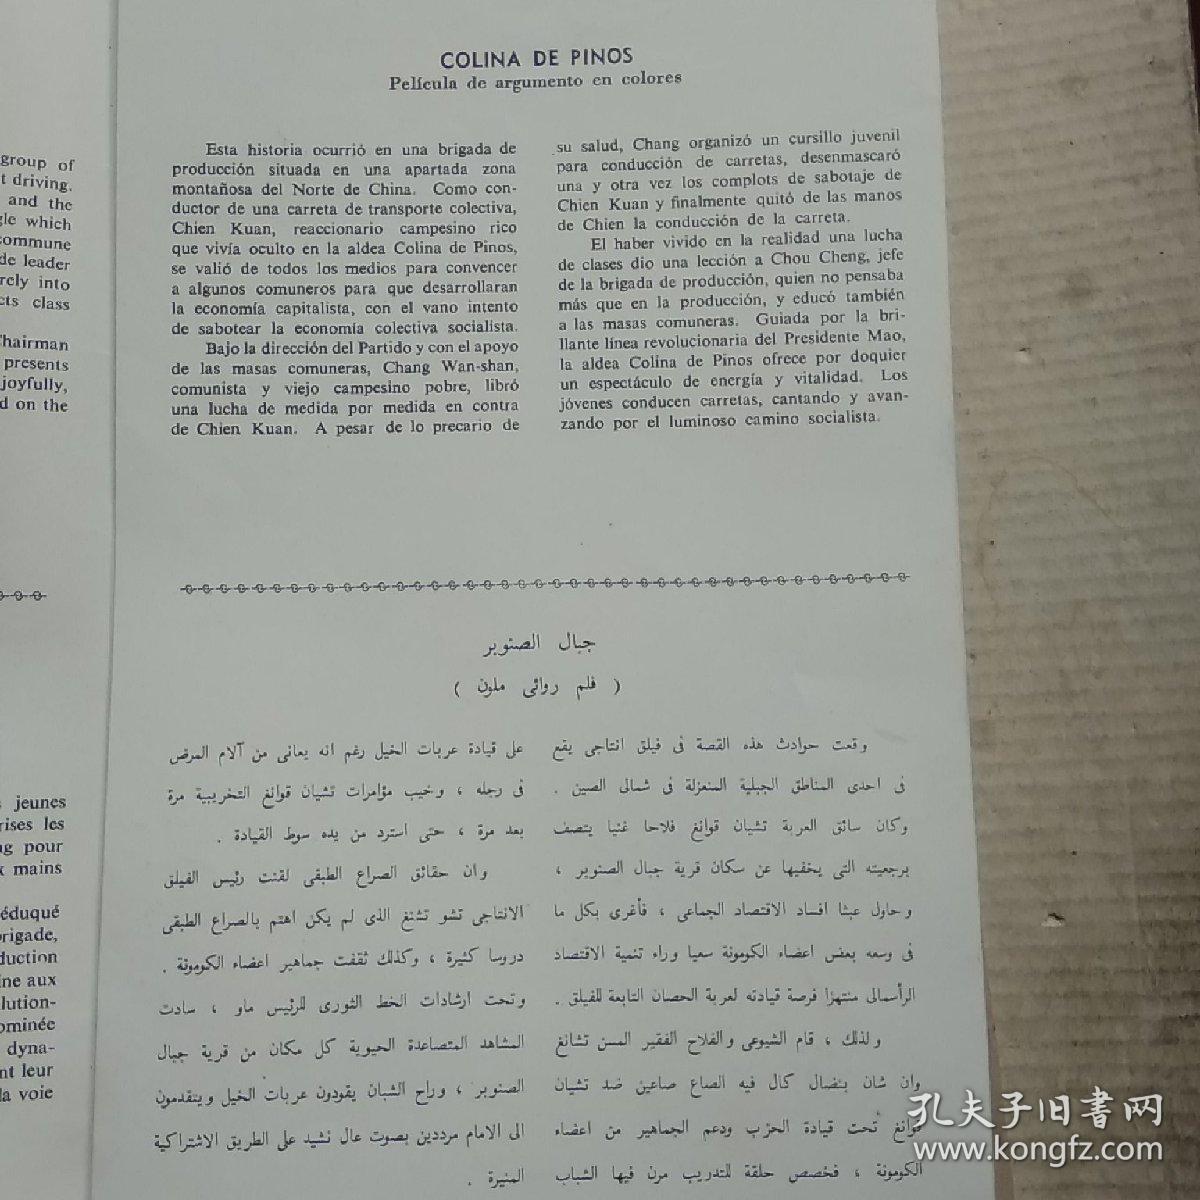 group of
t driving.
and the
gle which
commune
de leader
rely into
cts class
Chairman
presents
joyfully,
d on the
jeunes
rises les
ng pour
x mains
éduqué
brigade,
duction
ine aux
lution-
ominée
dyna-
nt leur
la voie
COLINA DE PINOS
Película de argumento en colores
Esta historia ocurrió en una brigada de
producción situada en una apartada zona
montañosa del Norte de China. Como con-
ductor de una carreta de transporte colectiva,
Chien Kuan, reaccionario campesino rico
que vivía oculto en la aldea Colina de Pinos,
se valió de todos los medios para convencer
a algunos comuneros para que desarrollaran
la economía capitalista, con el vano intento
de sabotear la economía colectiva socialista.
Bajo la dirección del Partido y con el apoyo
de las masas comuneras, Chang Wan-shan,
comunista y viejo campesino pobre, libró
una lucha de medida por medida en contra
de Chien Kuan. A pesar de lo precario de
su salud, Chang organizó un cursillo juvenil
para conducción de carretas, desenmascaró
una y otra vez los complots de sabotaje de
Chien Kuan y finalmente quitó de las manos
de Chien la conducción de la carreta.
El haber vivido en la realidad una lucha
de clases dio una lección a Chou Cheng, jefe
de la brigada de producción, quien no pensaba
más que en la producción, y educó también
a las masas comuneras. Guiada por la bri-
llante línea revolucionaria del Presidente Mao,
la aldea Colina de Pinos ofrece por doquier
un espectáculo de energía y vitalidad. Los
jóvenes conducen carretas, cantando y avan-
zando por el luminoso camino socialista.
جبال الصنوبر
( فلم روائى ملون )
وقعت حوادث هذه القصة فى فيلق انتاجى يقع
فى احدى المناطق الجبلية المنعزلة فى شمالى الصين .
وكان سائق العربة تشيان قوانغ فلاحا غنيا يتصف
برجعيته التى يخفيها عن سكان قرية جبال الصنوبر ،
وحاول عبثا افساد الاقتصاد الجماعى ، فأغرى بكل ما
فى وسعه بعض اعضاء الكومونة سعيا وراء تنمية الاقتصاد
الرأسمالى منتهزا فرصة قيادته لعربة الحصان التابعة للفيلق .
ولذلك ، قام الشيوعى والفلاح الفقير المسن تشانغ
وان شان بنضال كال فيه الصاع صاعين ضد تشيان
قوانغ تحت قيادة الحزب ودعم الجماهير من اعضاء
الكومونة ، فخصص حلقة للتدريب مرن فيها الشباب
على قيادة عربات الخيل رغم انه يعانى من آلام المرض
فى رجله ، وخيب مؤامرات تشيان قوانغ التخريبية مرة
بعد مرة ، حتى استرد من يده سوط القيادة .
وان حقائق الصراع الطبقى لقنت رئيس الفيلق
الانتاجى تشو تشنغ الذى لم يكن اهتم بالصراع الطبقى
دروسا كثيرة ، وكذلك ثقفت جماهير اعضاء الكومونة .
وتحت ارشادات الخط الثورى للرئيس ماو ، سادت
المشاهد المتصاعدة الحيوية كل مكان من قرية جبال
الصنوبر ، وراح الشبان يقودون عربات الخيل ويتقدمون
الى الامام مرددين بصوت عال نشيد على الطريق الاشتراكية
المنيرة .
孔夫子旧书网
www.kongfz.com